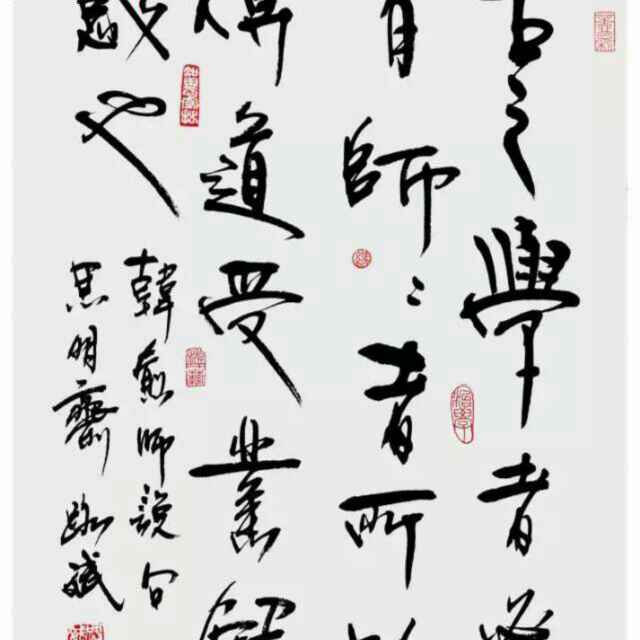 古之學者必
有師師者所以
傳道受業解
惑也
韓愈師說句
思明齋